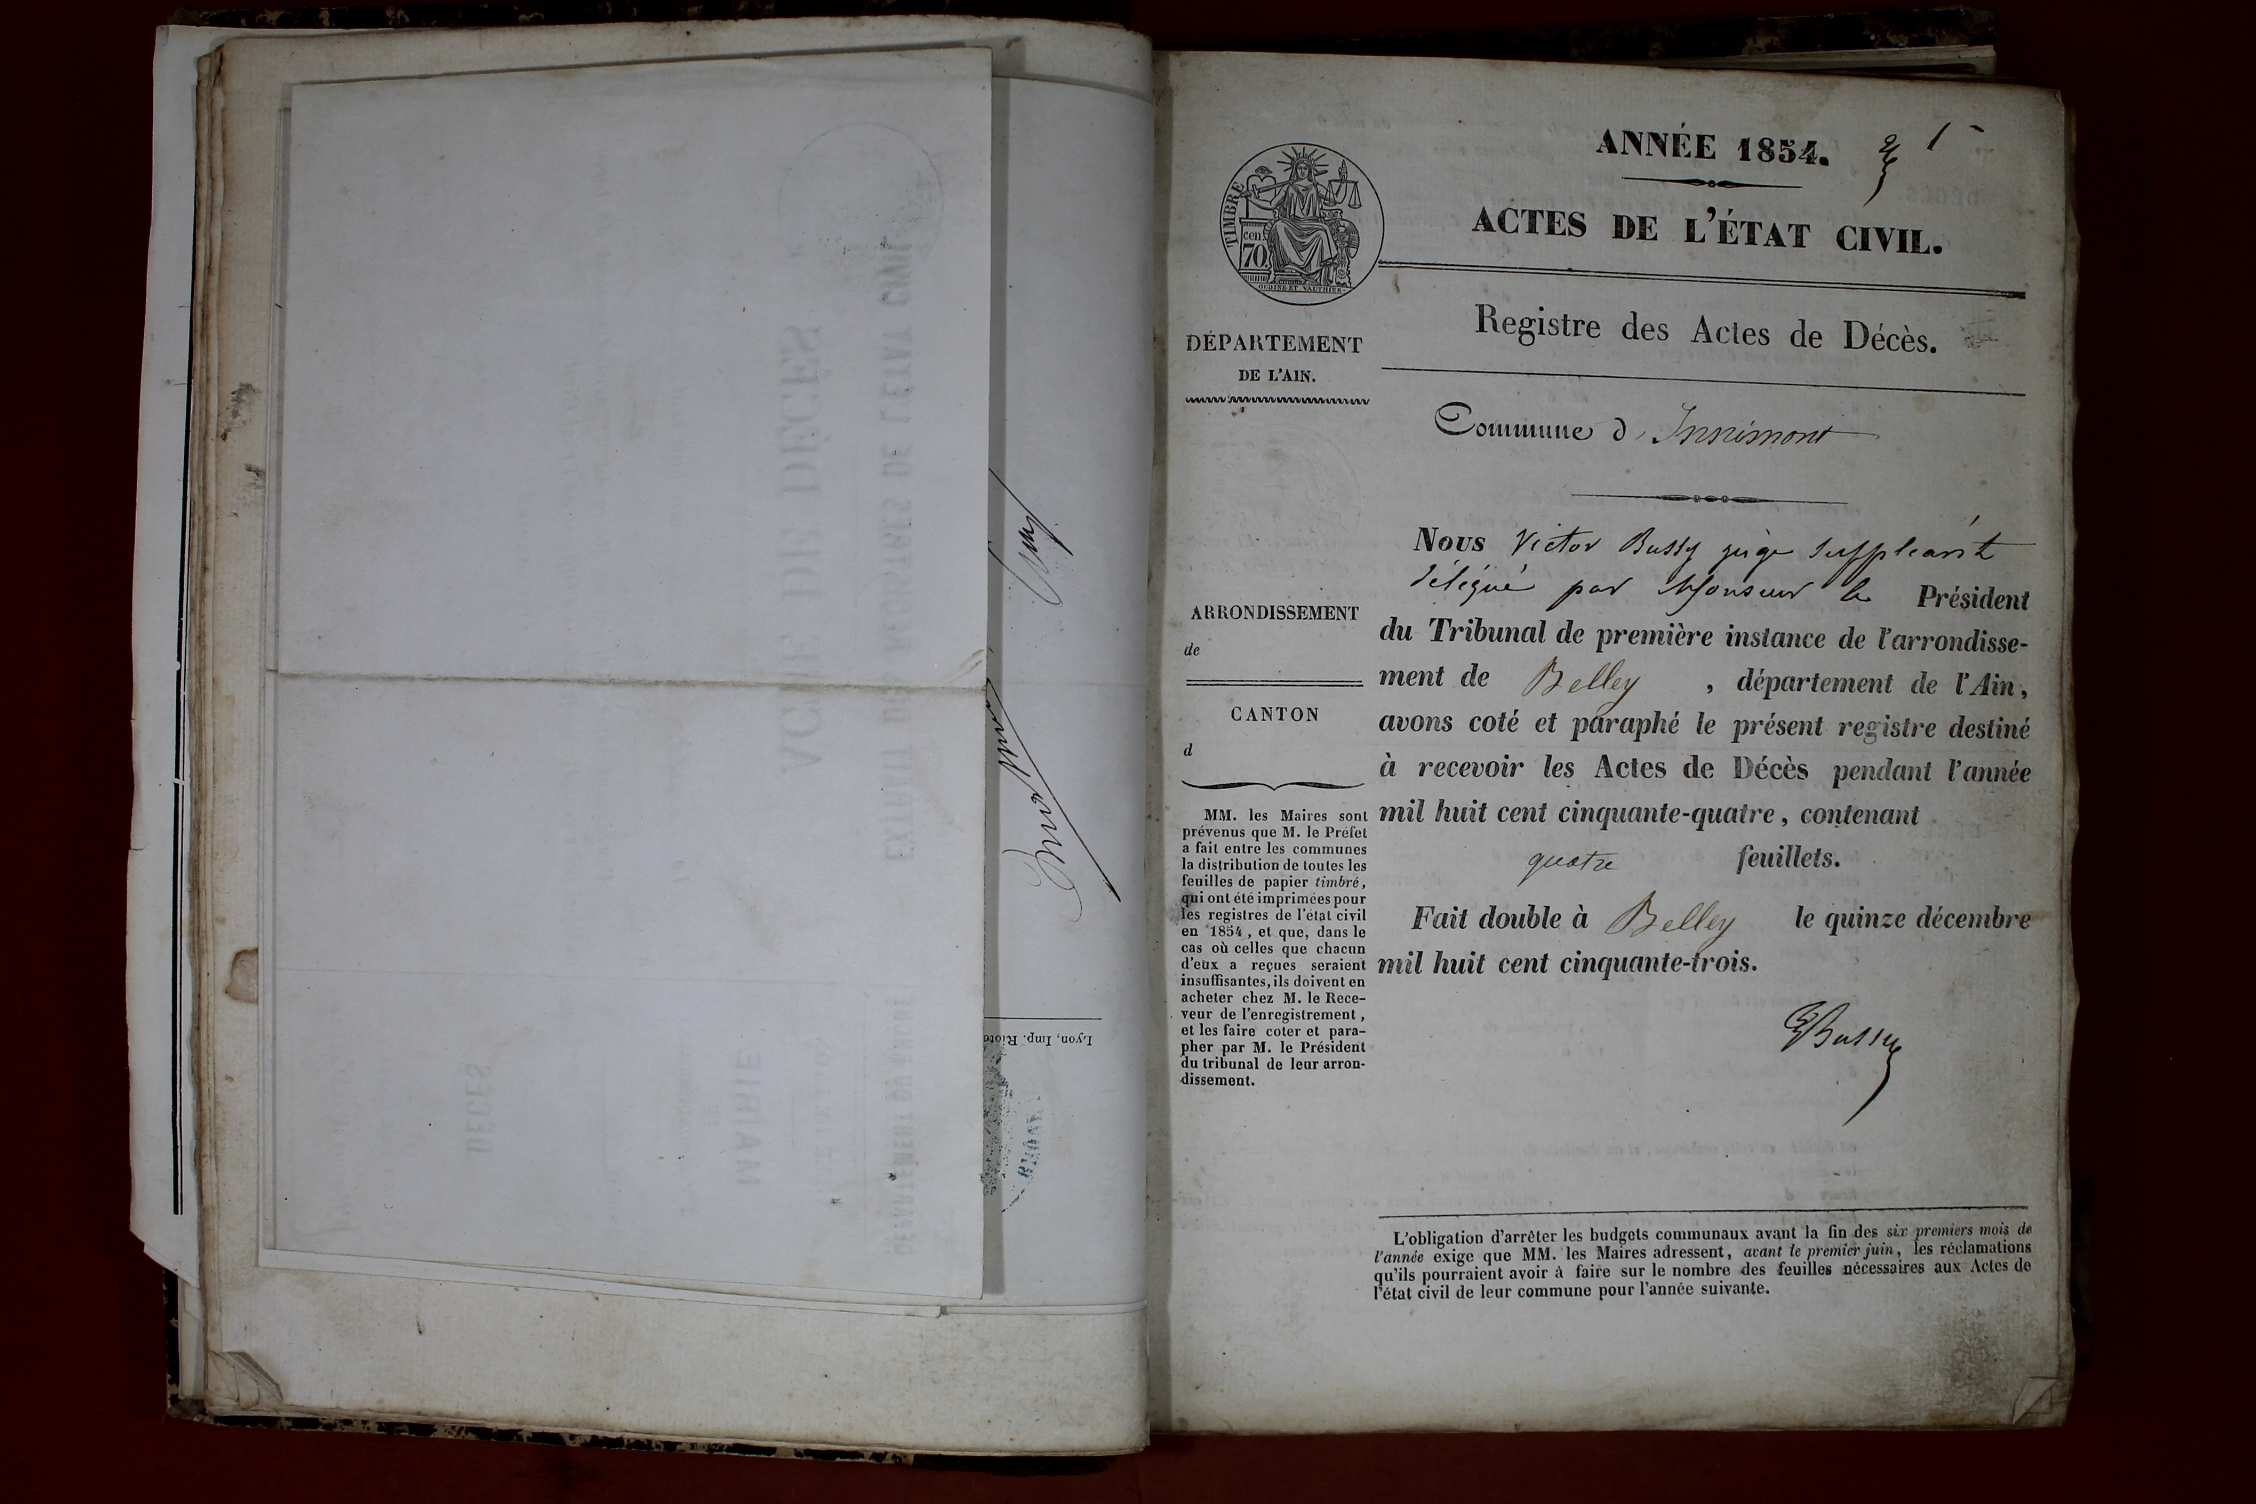 ANNÉE 1854.
1
ACTES DE L'ÉTAT CIVIL.
TIMBRE
cen.
70
OUDINÉ ET VAUTHIER
Registre des Actes de Décès.
DÉPARTEMENT
DE L'AIN.
Commune d'Innimont
Nous Victor Bussy juge suppléant
délégué par Monsieur le Président
du Tribunal de première instance de l'arrondisse-
ment de Belley, département de l'Ain,
avons coté et paraphé le présent registre destiné
à recevoir les Actes de Décès pendant l'année
mil huit cent cinquante-quatre, contenant
quatre feuillets.
Fait double à Belley le quinze décembre
mil huit cent cinquante-trois.
Bussy
ARRONDISSEMENT
de
CANTON
d
MM. les Maires sont
prévenus que M. le Préfet
a fait entre les communes
la distribution de toutes les
feuilles de papier timbré,
qui ont été imprimées pour
les registres de l'état civil
en 1854, et que, dans le
cas où celles que chacun
d'eux a reçues seraient
insuffisantes, ils doivent en
acheter chez M. le Rece-
veur de l'enregistrement,
et les faire coter et para-
pher par M. le Président
du tribunal de leur arron-
dissement.
L'obligation d'arrêter les budgets communaux avant la fin des six premiers mois de
l'année exige que MM. les Maires adressent, avant le premier juin, les réclamations
qu'ils pourraient avoir à faire sur le nombre des feuilles nécessaires aux Actes de
l'état civil de leur commune pour l'année suivante.
Lyon, Imp.
RHONE
EXTRAIT DES REGISTRES DE L'ÉTAT CIVIL
ACTE DE DÉCÈS
MAIRIE
DÉCÈS